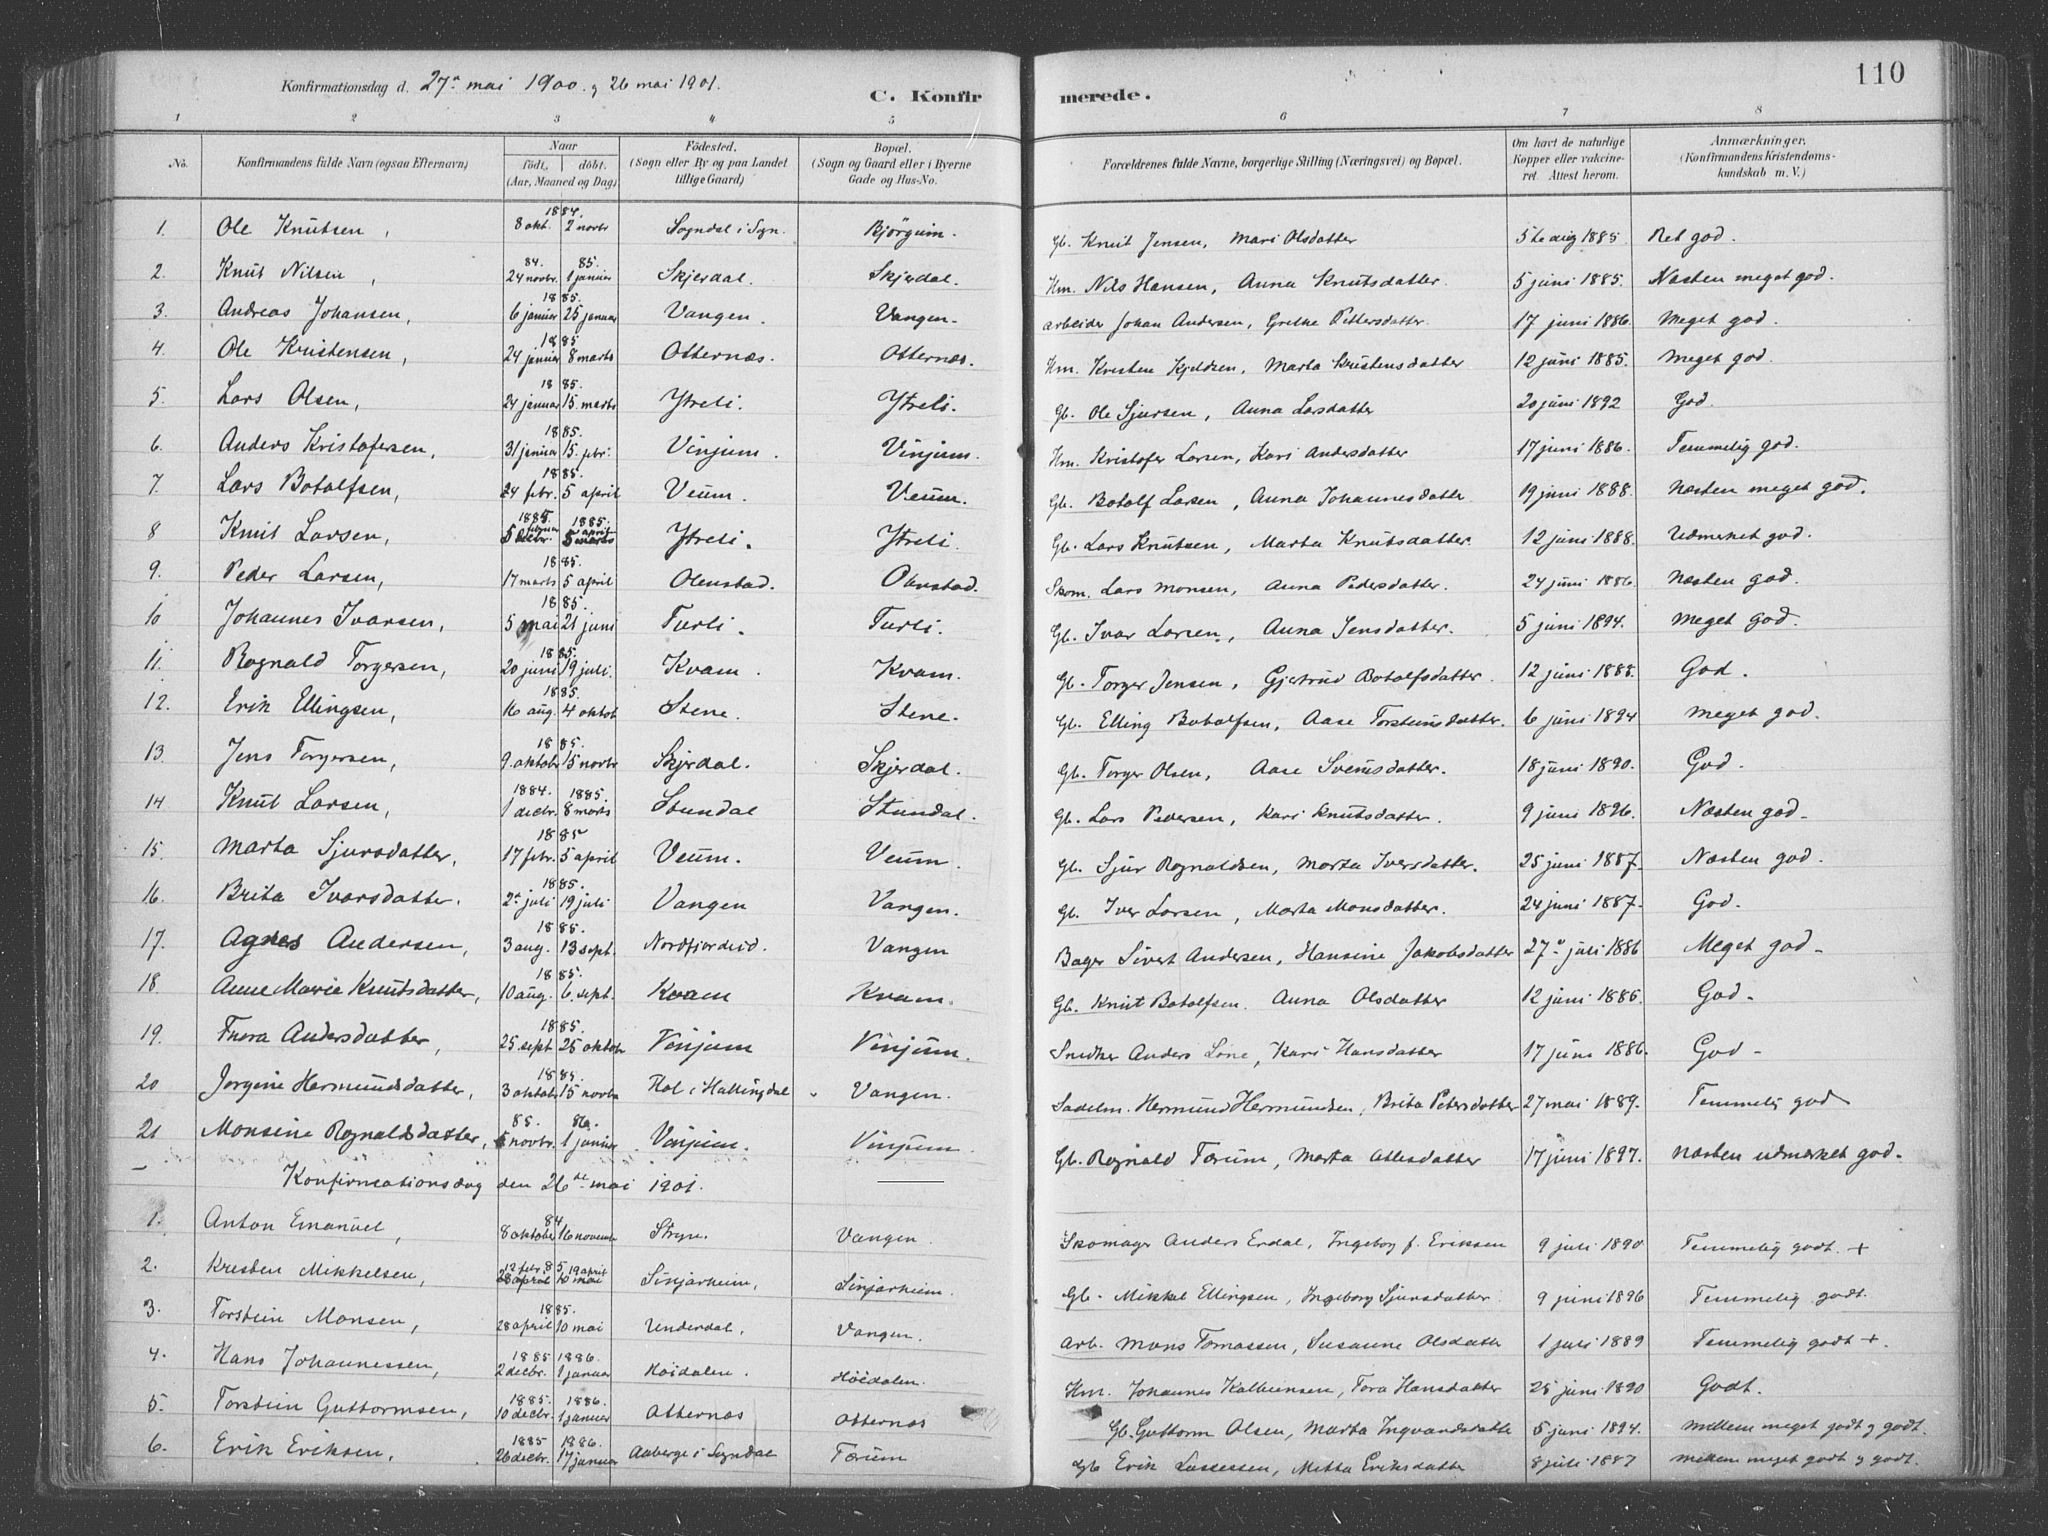 110
Konfirmationsdag d. 27. mai 1900. og 26 mai 1901.
C. Konfirmerede.
1 2 3 4 5 6 7 8
No. | Konfirmandens fulde Navn (ogsaa Efternavn) | Naar født, døbt. (Aar, Maaned og Dag) | Fødested. (Sogn eller By og paa Landet tillige Gaard) | Bopæl. (Sogn og Gaard eller i Byerne Gade og Hus-No. | Forældrenes fulde Navne, borgerlige Stilling (Næringsvei) og Bopæl. | Om havt de naturlige Kopper eller vakcineret. Attest herom. | Anmærkninger. (Konfirmandens Kristendomskundskab m. V.)
1. Ole Knutsen, | 1884. 8 okt. 2 novbr | Sogndal i Sogn. | Bjørgum. | Gb. Knut Jensen, Mari Olsdatter | 5te aug 1885. | Ret god.
2. Knut Nilsen, | 84. 24 novbr. 85. 1 januar | Skjerdal. | Skjerdal. | Hm. Nils Hansen, Anna Knutsdatter. | 5 juni 1885. | Næsten meget god.
3. Andreas Johansen, | 1885. 6 januar 25 januar | Vangen. | Vangen. | arbeider Johan Andersen, Grethe Pettersdatter. | 17 juni 1886. | Meget god.
4. Ole Kristensen, | 1885 24 januar 8 marts | Otternæs. | Otternæs. | Hm. Kristen Kjeldsen, Marta Kristensdatter | 12 juni 1885. | Meget god.
5. Lars Olsen, | 1885. 24 januar 15. marts | Ytreli. | Ytreli. | Gb. Ole Sjursen, Anna Larsdatter | 20 juni 1892 | God.
6. Anders Kristofersen, | 1885. 31 januar 15. febr. | Vinjum. | Vinjum. | Hm. Kristofer Larsen, Kari Andersdatter | 17 juni 1886. | Temmelig god.
7. Lars Botolfsen, | 1885. 24 febr. 5 april | Veum. | Veum. | Gb. Botolf Larsen, Anna Johannesdatter | 19 juni 1888. | Næsten meget god.
8 Knut Larsen, | 1885 5 februar 1885. 5 april | Ytreli. | Ytreli. | Gb. Lars Knutsen, Marta Knutsdatter. | 12 juni 1888. | Udmerket god.
9. Peder Larsen, | 1885. 17 marts 5 april | Olenstad. | Olenstad. | Skom. Lars Monsen, Anna Pedersdatter. | 24 juni 1886. | Næsten god.
10 Johannes Ivarsen, | 1885. 5 mai 21 juni | Turli. | Turli. | Gb. Ivar Larsen, Anna Jensdatter. | 5 juni 1894. | Meget god.
11. Rognald Torgersen, | 1885. 20 juni 19 juli. | Kvam. | Kvam. | Gb. Torger Jensen, Gjertrud Botolfsdatter. | 12 juni 1888. | God.
12. Erik Ellingsen, | 1885. 16 aug. 4 oktob | Stene. | Stene. | Gb. Elling Botolfsen, Aase Torsteinsdatter. | 6 juni 1894 | Meget god.
13 Jens Torgersen, | 1885. 9. oktobr 15 novbr | Skjerdal. | Skjerdal. | Gb. Torger Olsen, Aase Svensdatter. | 18 juni 1890. | God.
14 Knut Larsen, | 1884. 1 decbr. 1885. 8 marts | Stundal | Stundal. | Gb. Lars Pedersen, Kari Knutsdatter. | 9 juni 1896. | Næsten god.
15. Marta Sjursdatter, | 1885 17 febr. 5 april | Veum. | Veum. | Gb. Sjur Rognaldsen, Marta Iversdatter. | 25 juni 1887. | Næsten god.
16. Brita Ivarsdatter. | 1885. 2. juli 19 juli | Vangen | Vangen. | Gb. Iver Larsen, Marta Monsdatter. | 24 juni 1887. | God.
17. Agnes Andersen, | 1885. 3 aug. 13 sept. | Nordfjordeid. | Vangen | Bager Sivert Andersen, Hansine Jakobsdatter | 27. juli 1886 | Meget god.
18 Anne Marie Knutsdatter, | 1885. 10 aug. 6 sept. | Kvam | Kvam. | Gb. Knut Botolfsen. Anna Olsdatter | 12 juni 1886. | God.
19. Thora Andersdatter, | 1885. 25 sept 25 oktob | Vinjum | Vinjum. | Snedker Anders Lone, Kari Hansdatter | 17 juni 1886. | God
20 Jorgine Hermundsdatter, | 1885. 3 oktobr 15 novbr | Hol i Hallingdal | Vangen. | Sadelm. Hermund Hermundsen, Brita Petersdatter | 27 mai 1889. | Temmelig god
21 Monsine Rognaldsdatter, | 85. 5 novbr. 86. 1 januar | Vinjum. | Vinjum. | Gb. Rognald Torum, Marta Atlesdatter | 17 juni 1897. | Næsten udmerket god.
Konfirmationsdag den 26de mai 1901.
1. Anton Emanuel, | 84 8 oktober 16 novembr | Stryn. | Vangen. | Skomager Anders Erdal, Ingeborg f. Eriksen | 9 juli 1890 | Temmelig godt. +
2. Kristen Mikkelsen, | 12 febr. 85, 19 april 28 april 10 mai | Sinjarheim, | Sinjarheim. | Gb. Mikkel Ellingsen, Ingeborg Sjursdatter. | 9 juni 1896 | Temmelig godt.
3. Torstein Monsen, | 1885. 28 april 10 mai | Underdal, | Vangen. | Arb. Mons Tomassen, Susanne Olsdatter | 1 juli 1889 | Temmelig godt +.
4. Hans Johannessen, | 1885 2 decbr. 1886. 1 januar | Høidalen. | Høidalen. | Hm. Johannes Kolbeinsen, Tora Hansdatter | 25 juni 1890 | Godt.
5. Torstein Guttormsen, | 1885. 10 decbr. 1886. 1 januar | Otternæs | Otternæs | Gb. Guttorm Olsen, Marta Ingvardsdatter | 5 juni 1894. | Mellem meget godt og godt.
6. Erik Eriksen, | 1885 26 decbr. 1886. 17 januar | Aaberge i Sogndal | Torum | Gb Erik Lassesen, Metta Eriksdatter | 8 juli 1887 | Mellem meget godt og godt.